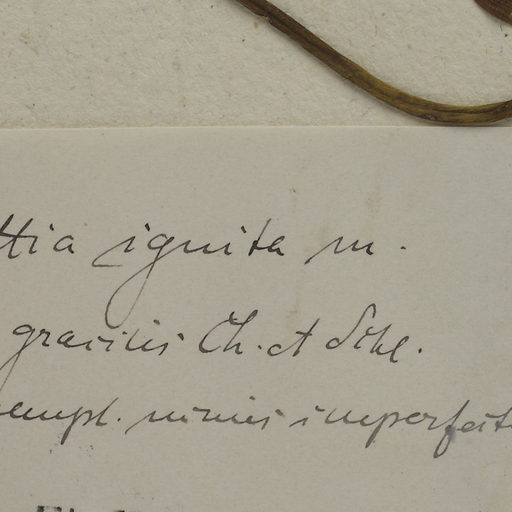 ttia ignita m.
gracilis Ch. et Schl.
empl. nimis imperfect